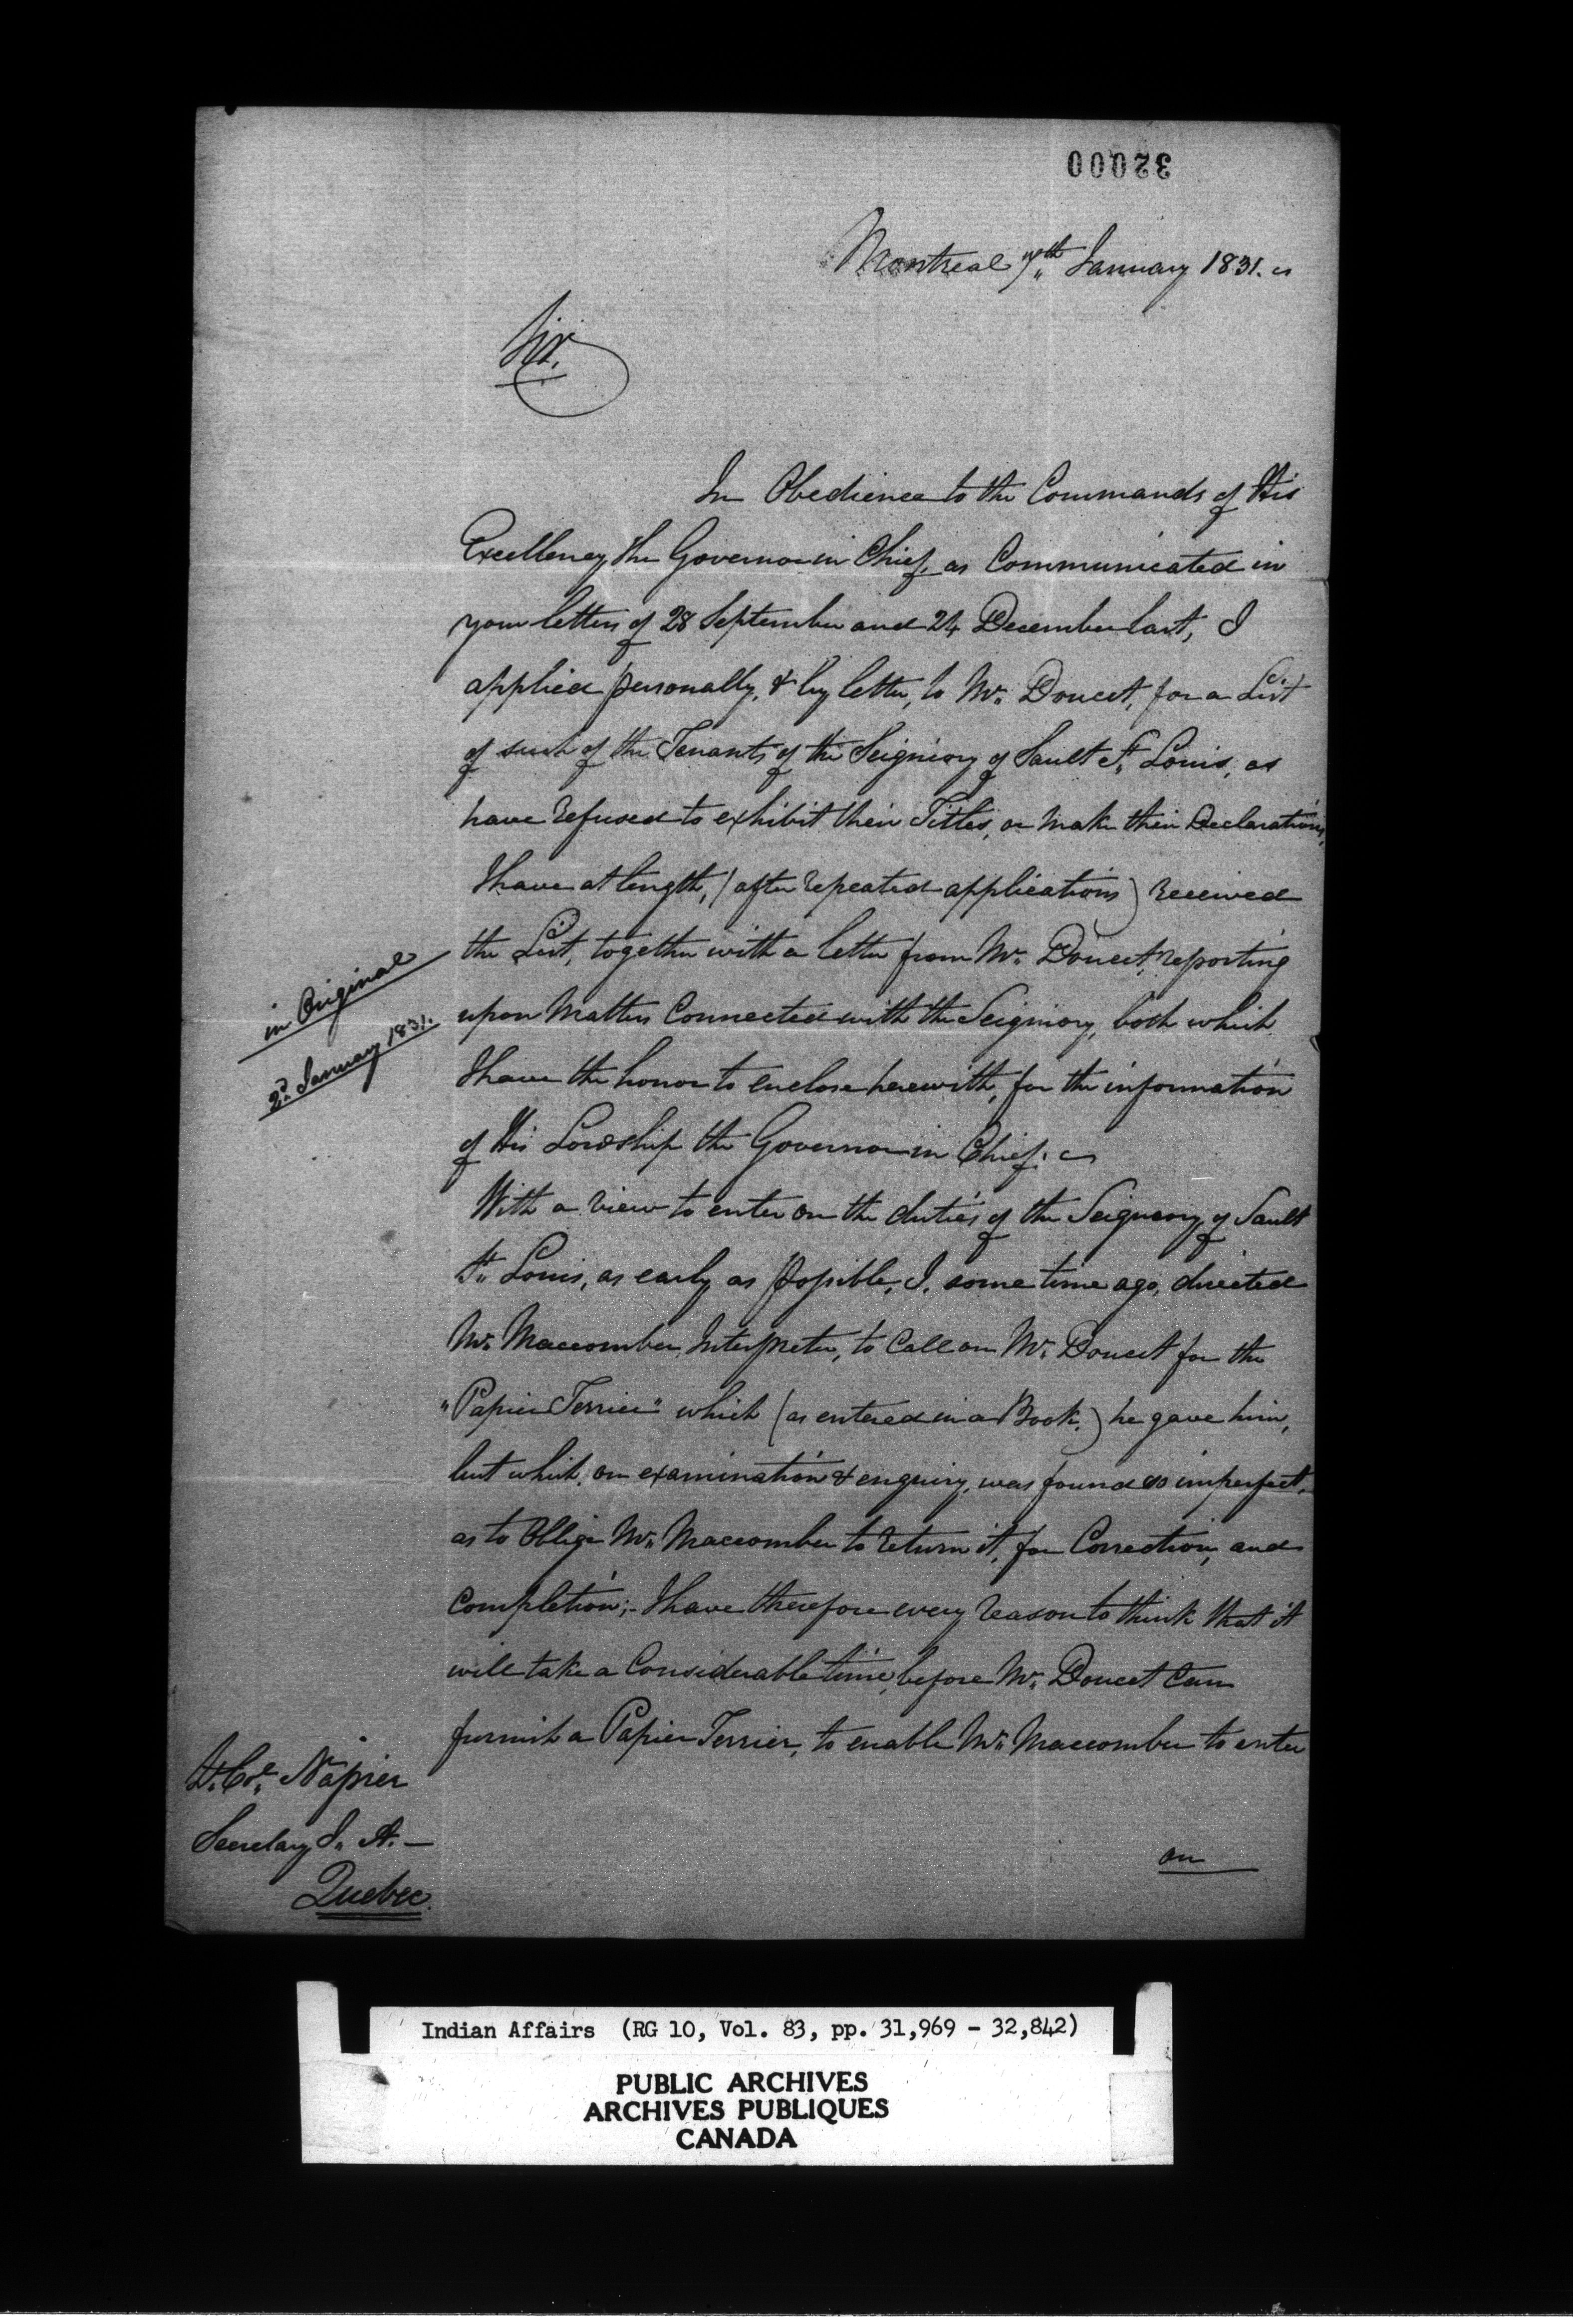 32000
Montreal 7th January 1831.
Sir.
In Obedience to the Commands of His
Excellency the Governor in Chief, as Communicated in
your letters of 28 September and 24 December last, I
applied personally, & by letter, to Mr. Doucet, for a List
of such of the Tenants of the Seigniory of Sault St. Louis, as
have refused to exhibit their Titles, or make their Declarations,
I have at length, (after repeated applications) received
the List, together with a letter from Mr. Doucet, reporting
in Original
2d. January 1831.
upon Matters Connected with the Seigniory, both which
I have the honor to enclose herewith, for the information
of His Lordship the Governor in Chief.
With a view to enter on the duties of the Seigneory of Sault
St. Louis, as early as possible, I, some time ago, directed
Mr. Maccomber, Interpreter, to Call on Mr. Doucet for the
"Papier Terrier" which (as entered in a Book,) he gave him,
but which, on examination & enquiry, was found so imperfect,
as to Oblige Mr. Maccomber to return it, for Correction, and
Completion;- I have therefore every reason to think that it
will take a Considerable time, before Mr. Doucet Can
furnish a Papier Terrier, to enable Mr. Maccomber to enter
Lt. Col. Napier
Secretary I. A.
Quebec.
on
Indian Affairs (RG 10, Vol. 83, pp. 31,969 - 32,842)
PUBLIC ARCHIVES
ARCHIVES PUBLIQUES
CANADA